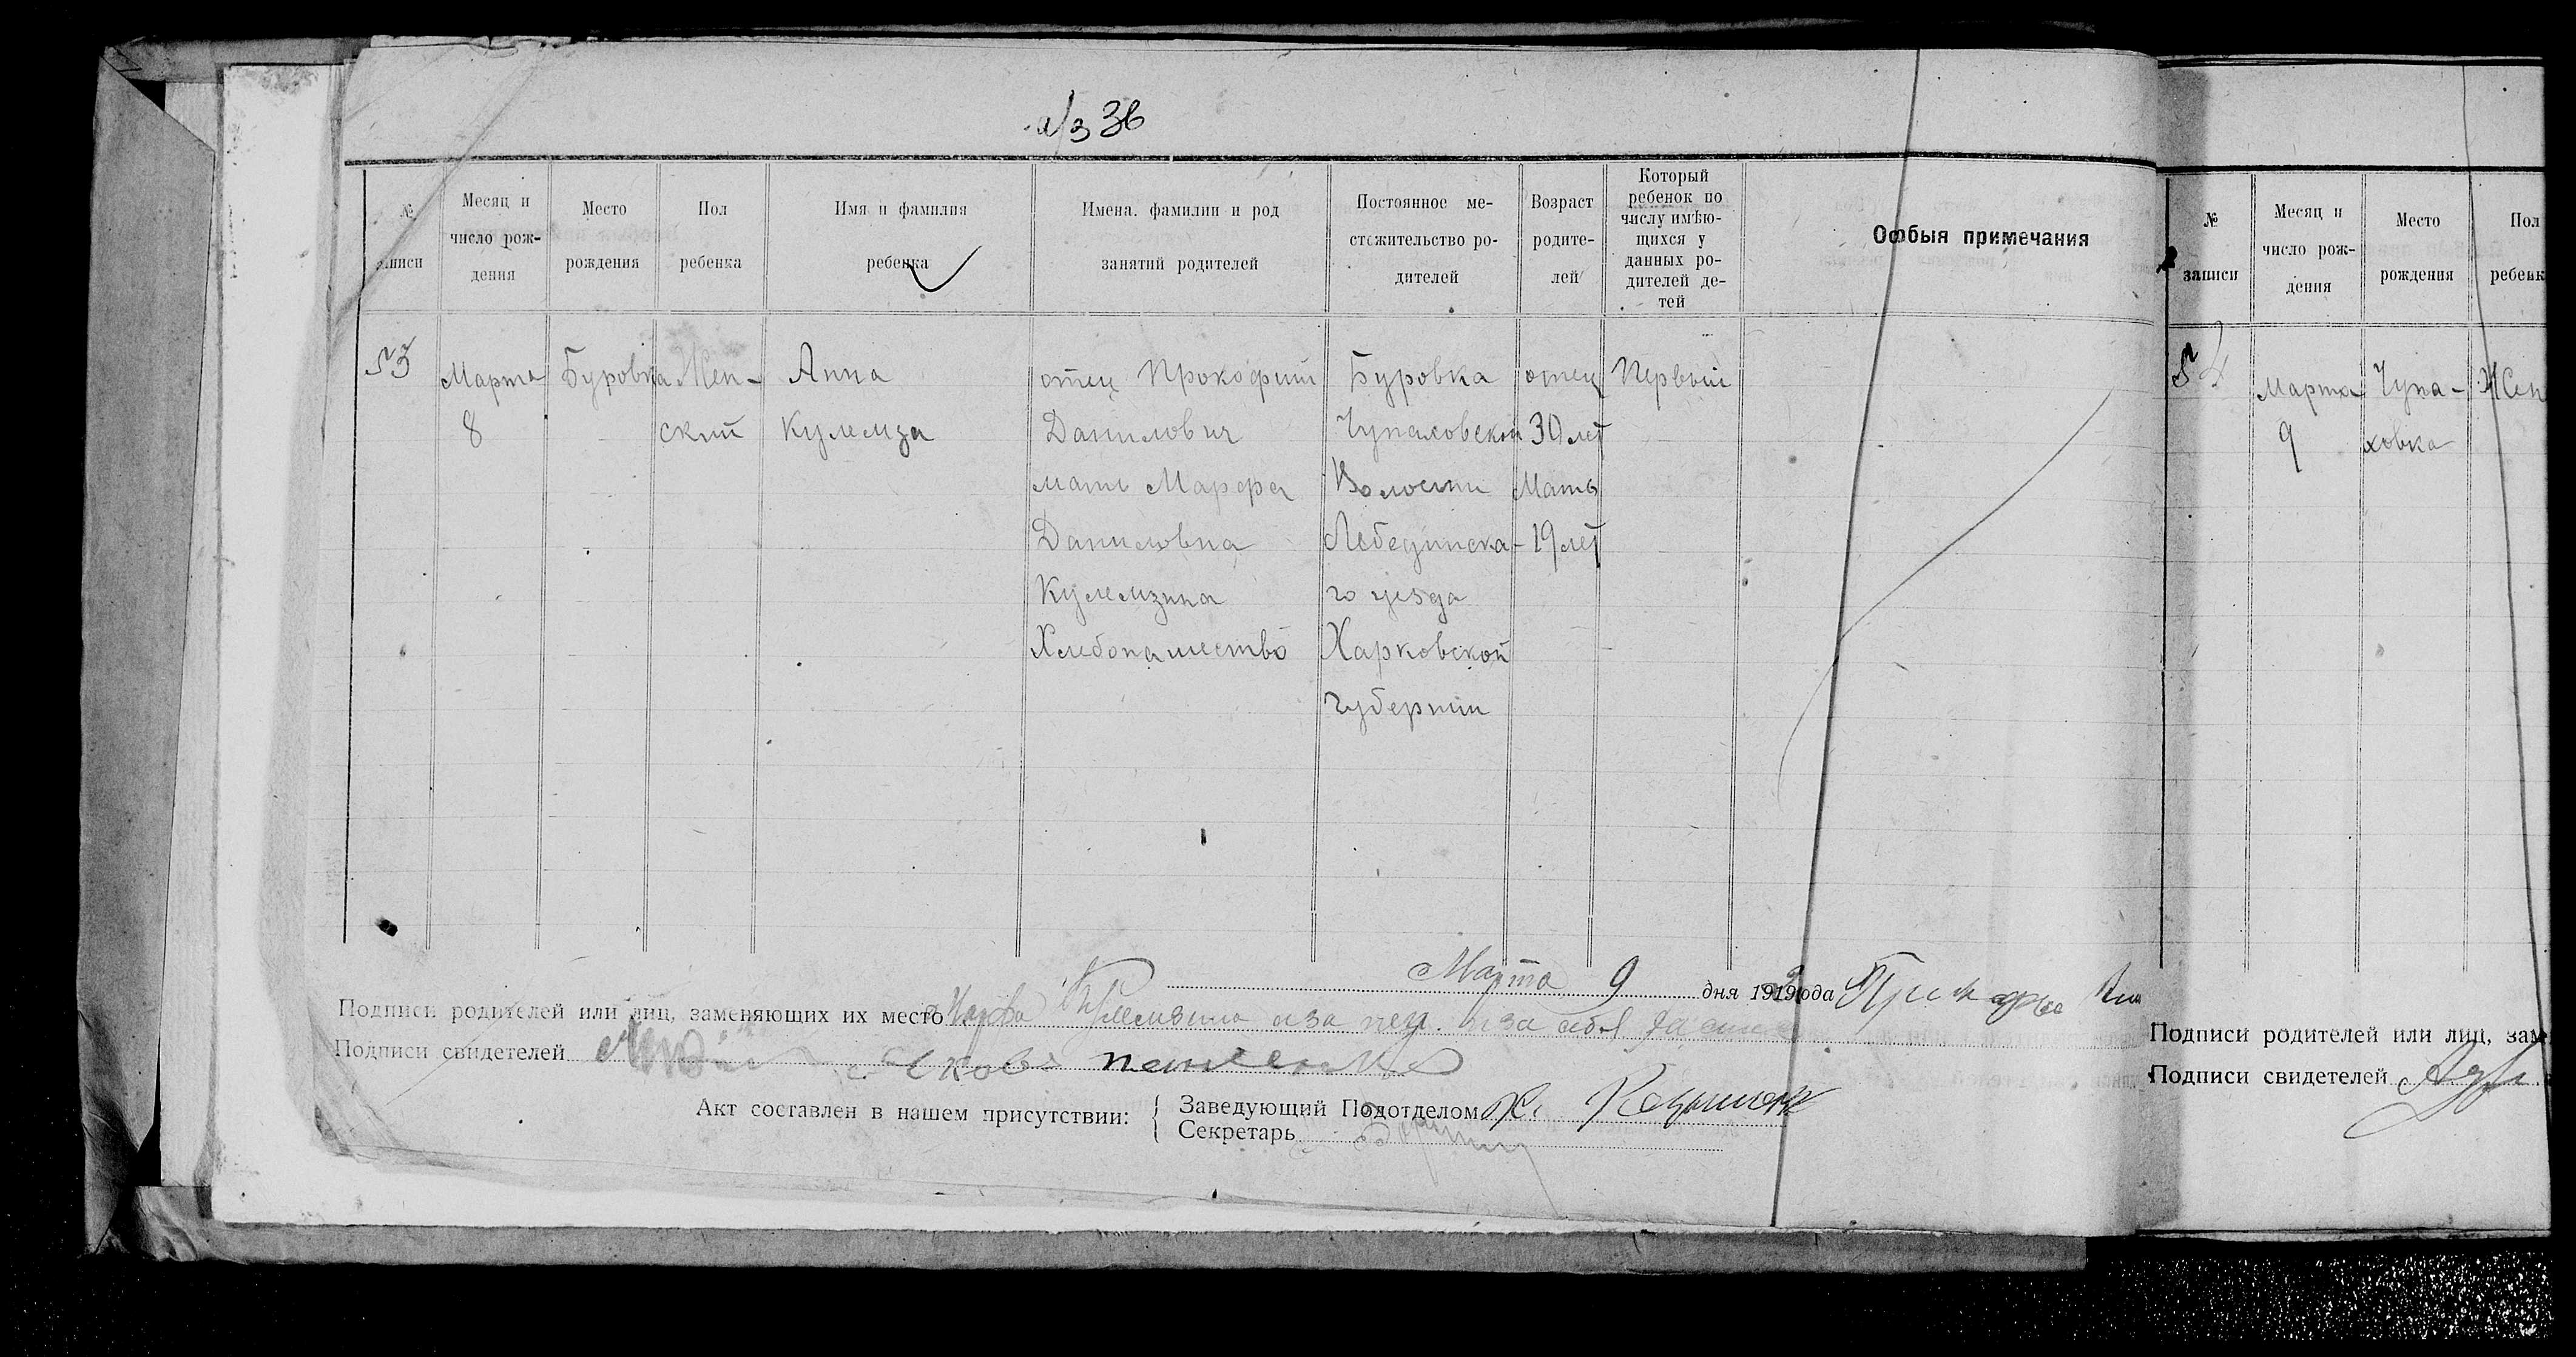 а/з 36
№ записи
Месяц и число рождения
Место рождения
Пол ребенка
Имя и фамилия ребенка
Имена, фамилии и род занятий родителей
Постоянное местожительство родителей
Возраст родителей
Который ребенок по числу имѣющихся у данных родителей детей
Особыя примечания
53
Марта
8
Буровка
Жен-
ский
Анна
Кулемза
отец Прокофий
Данилович
мать Марфа
Даниловна
Кулемзина
Хлебопашество
Буровка
Чупаховской
Волости
Лебединска-
го уезда
Харковской
губернии
отец
30 лет
Мать
19 лет
Первый
Марта 9 дня 1919 года
Подписи родителей или лиц, заменяющих их место
Подписи свидетелей
Акт составлен в нашем присутствии:
Заведующий Подотделом
Секретарь
№ записи
Месяц и число рождения
Место рождения
Пол
ребенк
54
Марта
9
Чупа-
ховка
Жен
Подписи родителей или лиц, зам
Подписи свидетелей